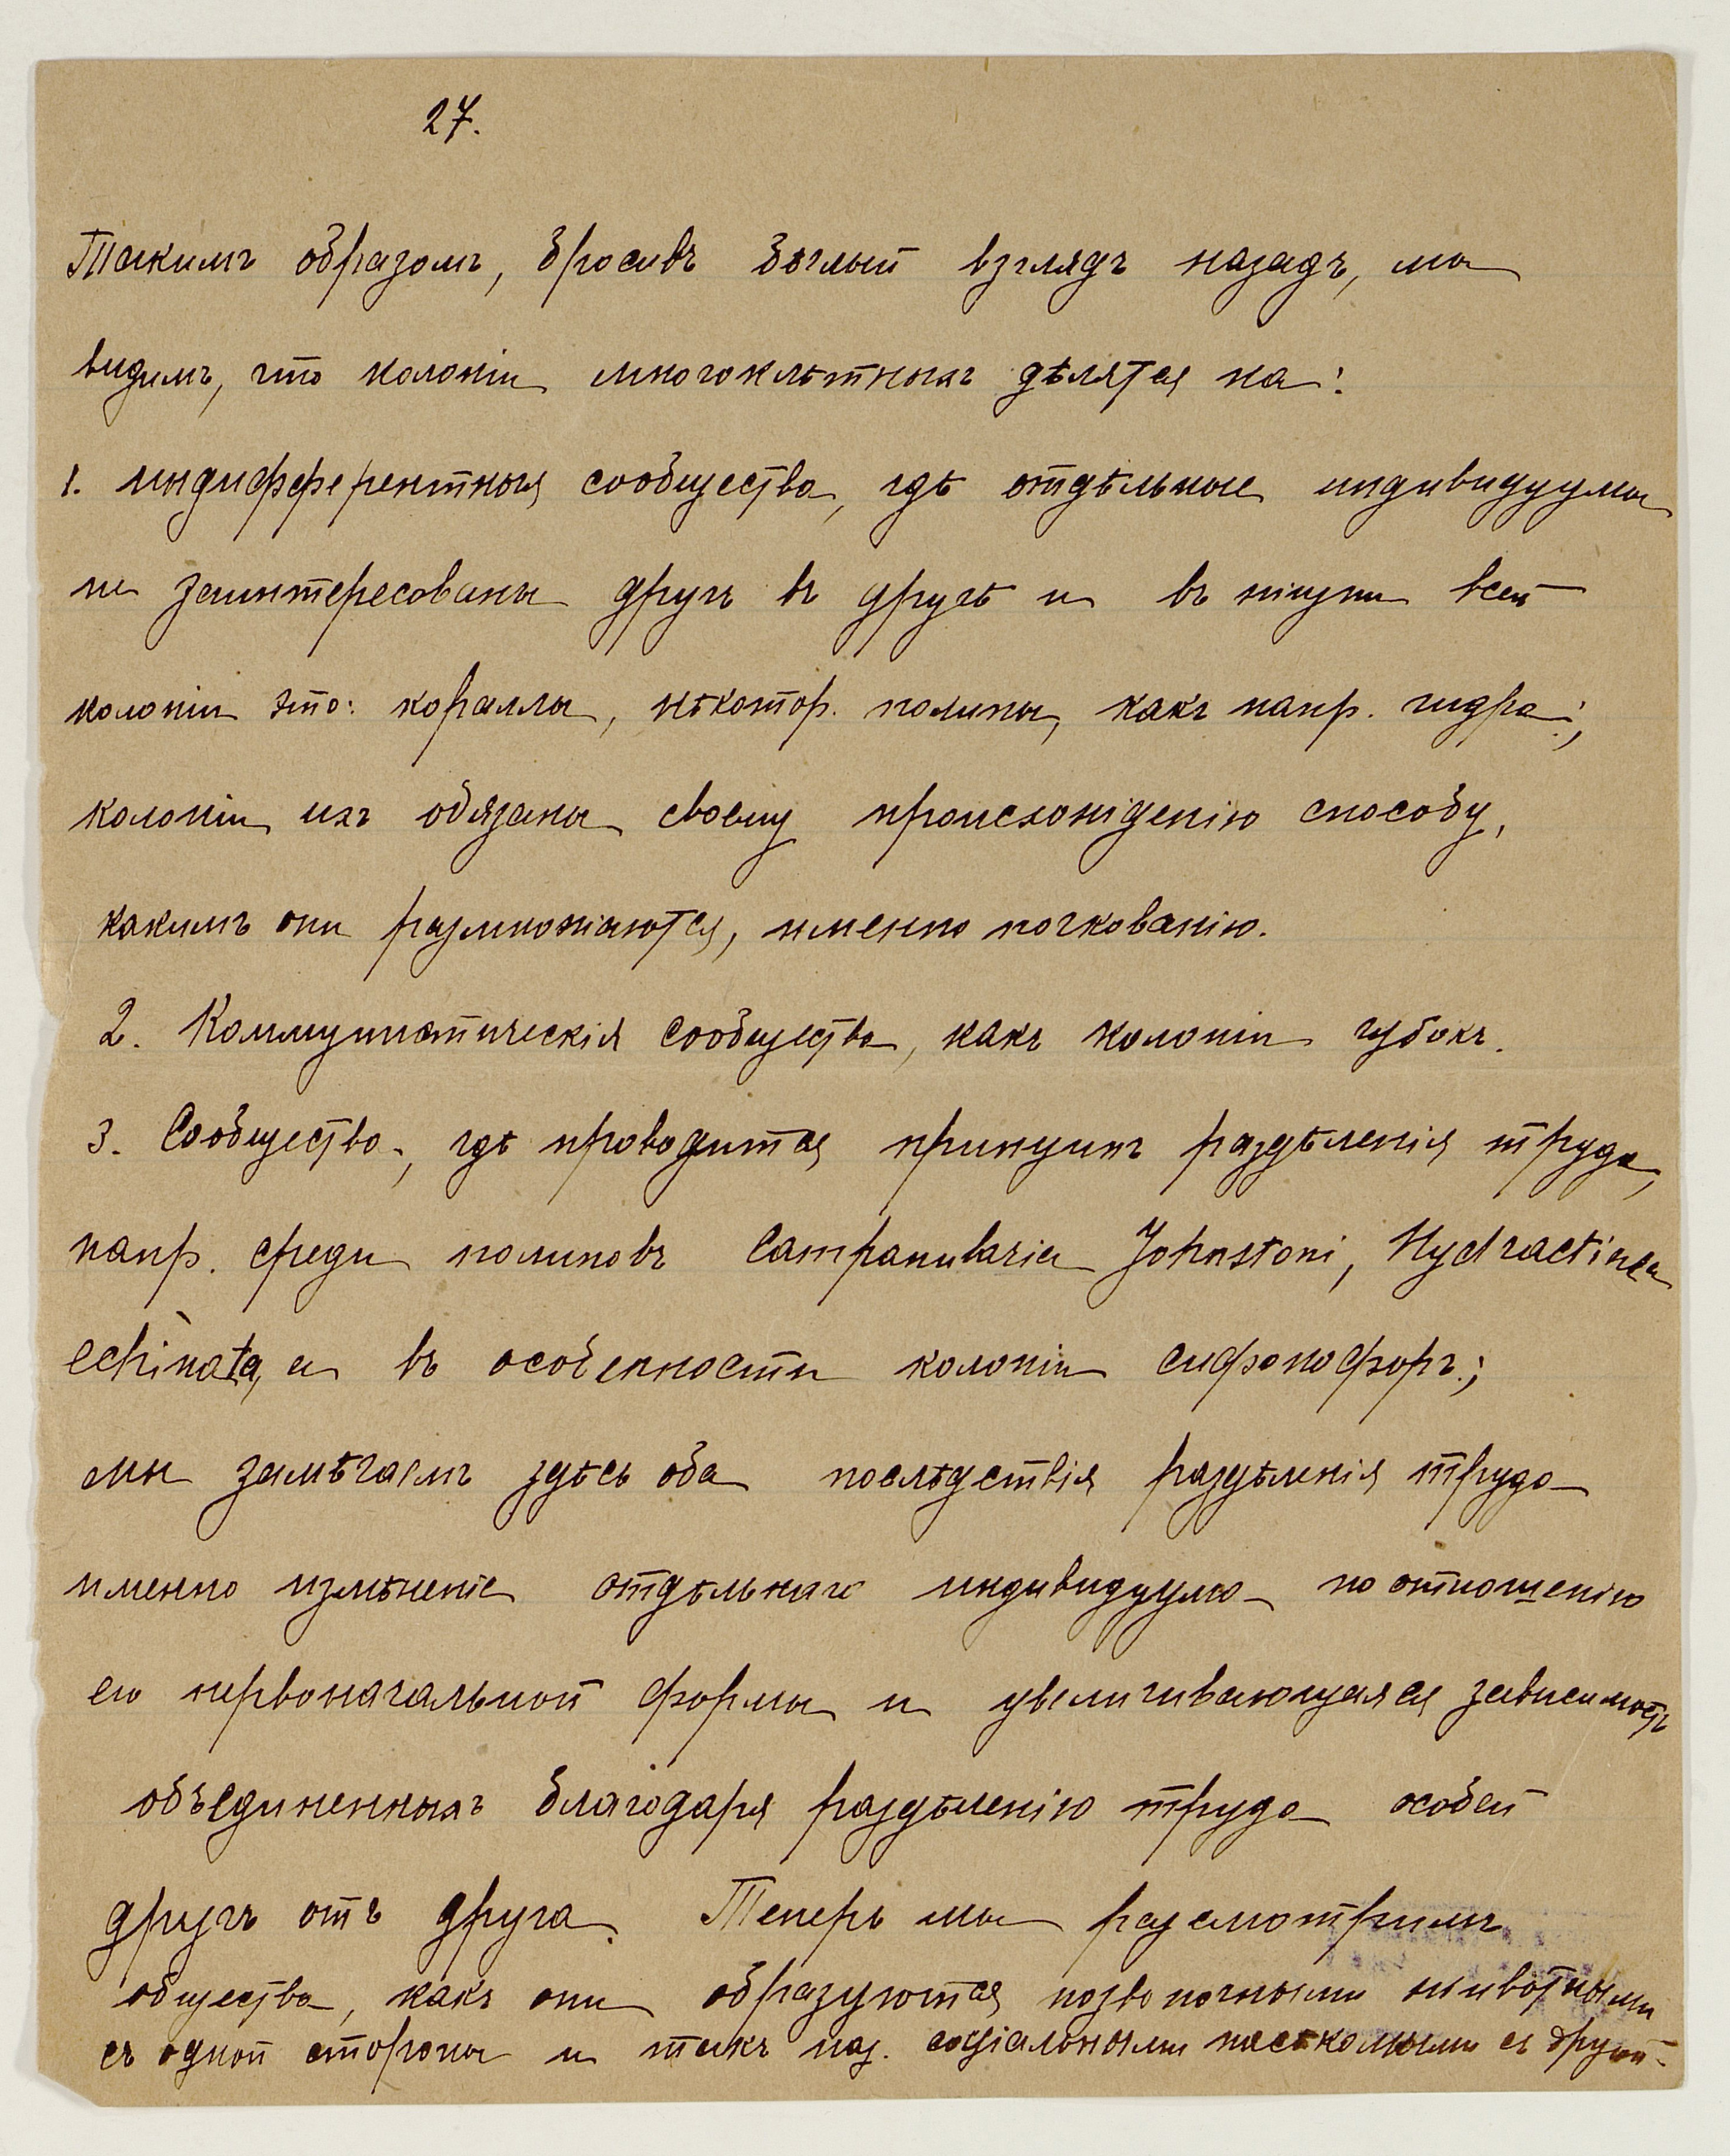 27.
Такимъ образомъ, бросивъ бѣглый взглядъ назадъ, мы
видимъ, что колоніи многоклѣтныхъ дѣлятся на:
1. индифферентныя сообщества, гдѣ отдѣльные индивидуумы
не заинтересованы другъ въ другѣ и въ жизни всей
колоніи это: кораллы, нѣкотор. полипы, какъ напр. гидра;
колоніи ихъ обязаны своему происхожденію способу,
какимъ они размножаются, именно почкованію.
2. Коммунистическія сообщества, какъ колоніи губокъ.
3. Сообщества, гдѣ проводится принципъ раздѣленія труда,
напр. среди полиповъ Campanularia Johnstoni, Hydractinea
echinata, а въ особенности колоніи сифонофоръ;
мы замѣчаемъ здѣсь оба послѣдствія раздѣленія труда
именно измѣненіе отдѣльнаго индивидуума по отношенію
его первоначальной формы и увеличивающаяся зависимость
объединенныхъ благодаря раздѣленію труда особей
другъ отъ друга. Теперь мы разсмотримъ
общества, какъ они образуются позвоночными животными
съ одной стороны и такъ наз. соціальными насѣкомыми съ другой.